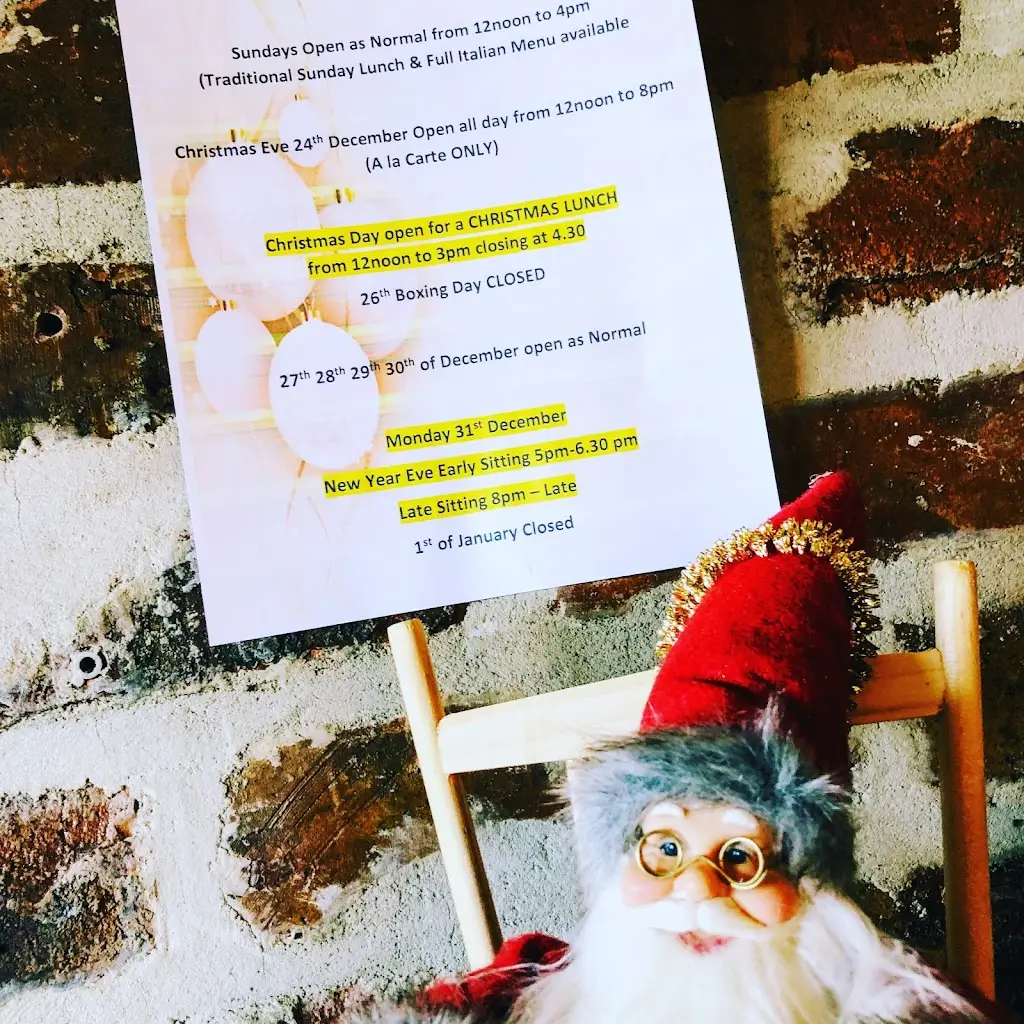 Sundays Open as Normal from 12noon to 4pm
(Traditional Sunday Lunch & Full Italian Menu available
Christmas Eve 24th December Open all day from 12noon to 8pm
(A la Carte ONLY)
Christmas Day open for a CHRISTMAS LUNCH
from 12noon to 3pm closing at 4.30
26th Boxing Day CLOSED
27th 28th 29th 30th of December open as Normal
Monday 31st December
New Year Eve Early Sitting 5pm-6.30 pm
Late Sitting 8pm – Late
1st of January Closed